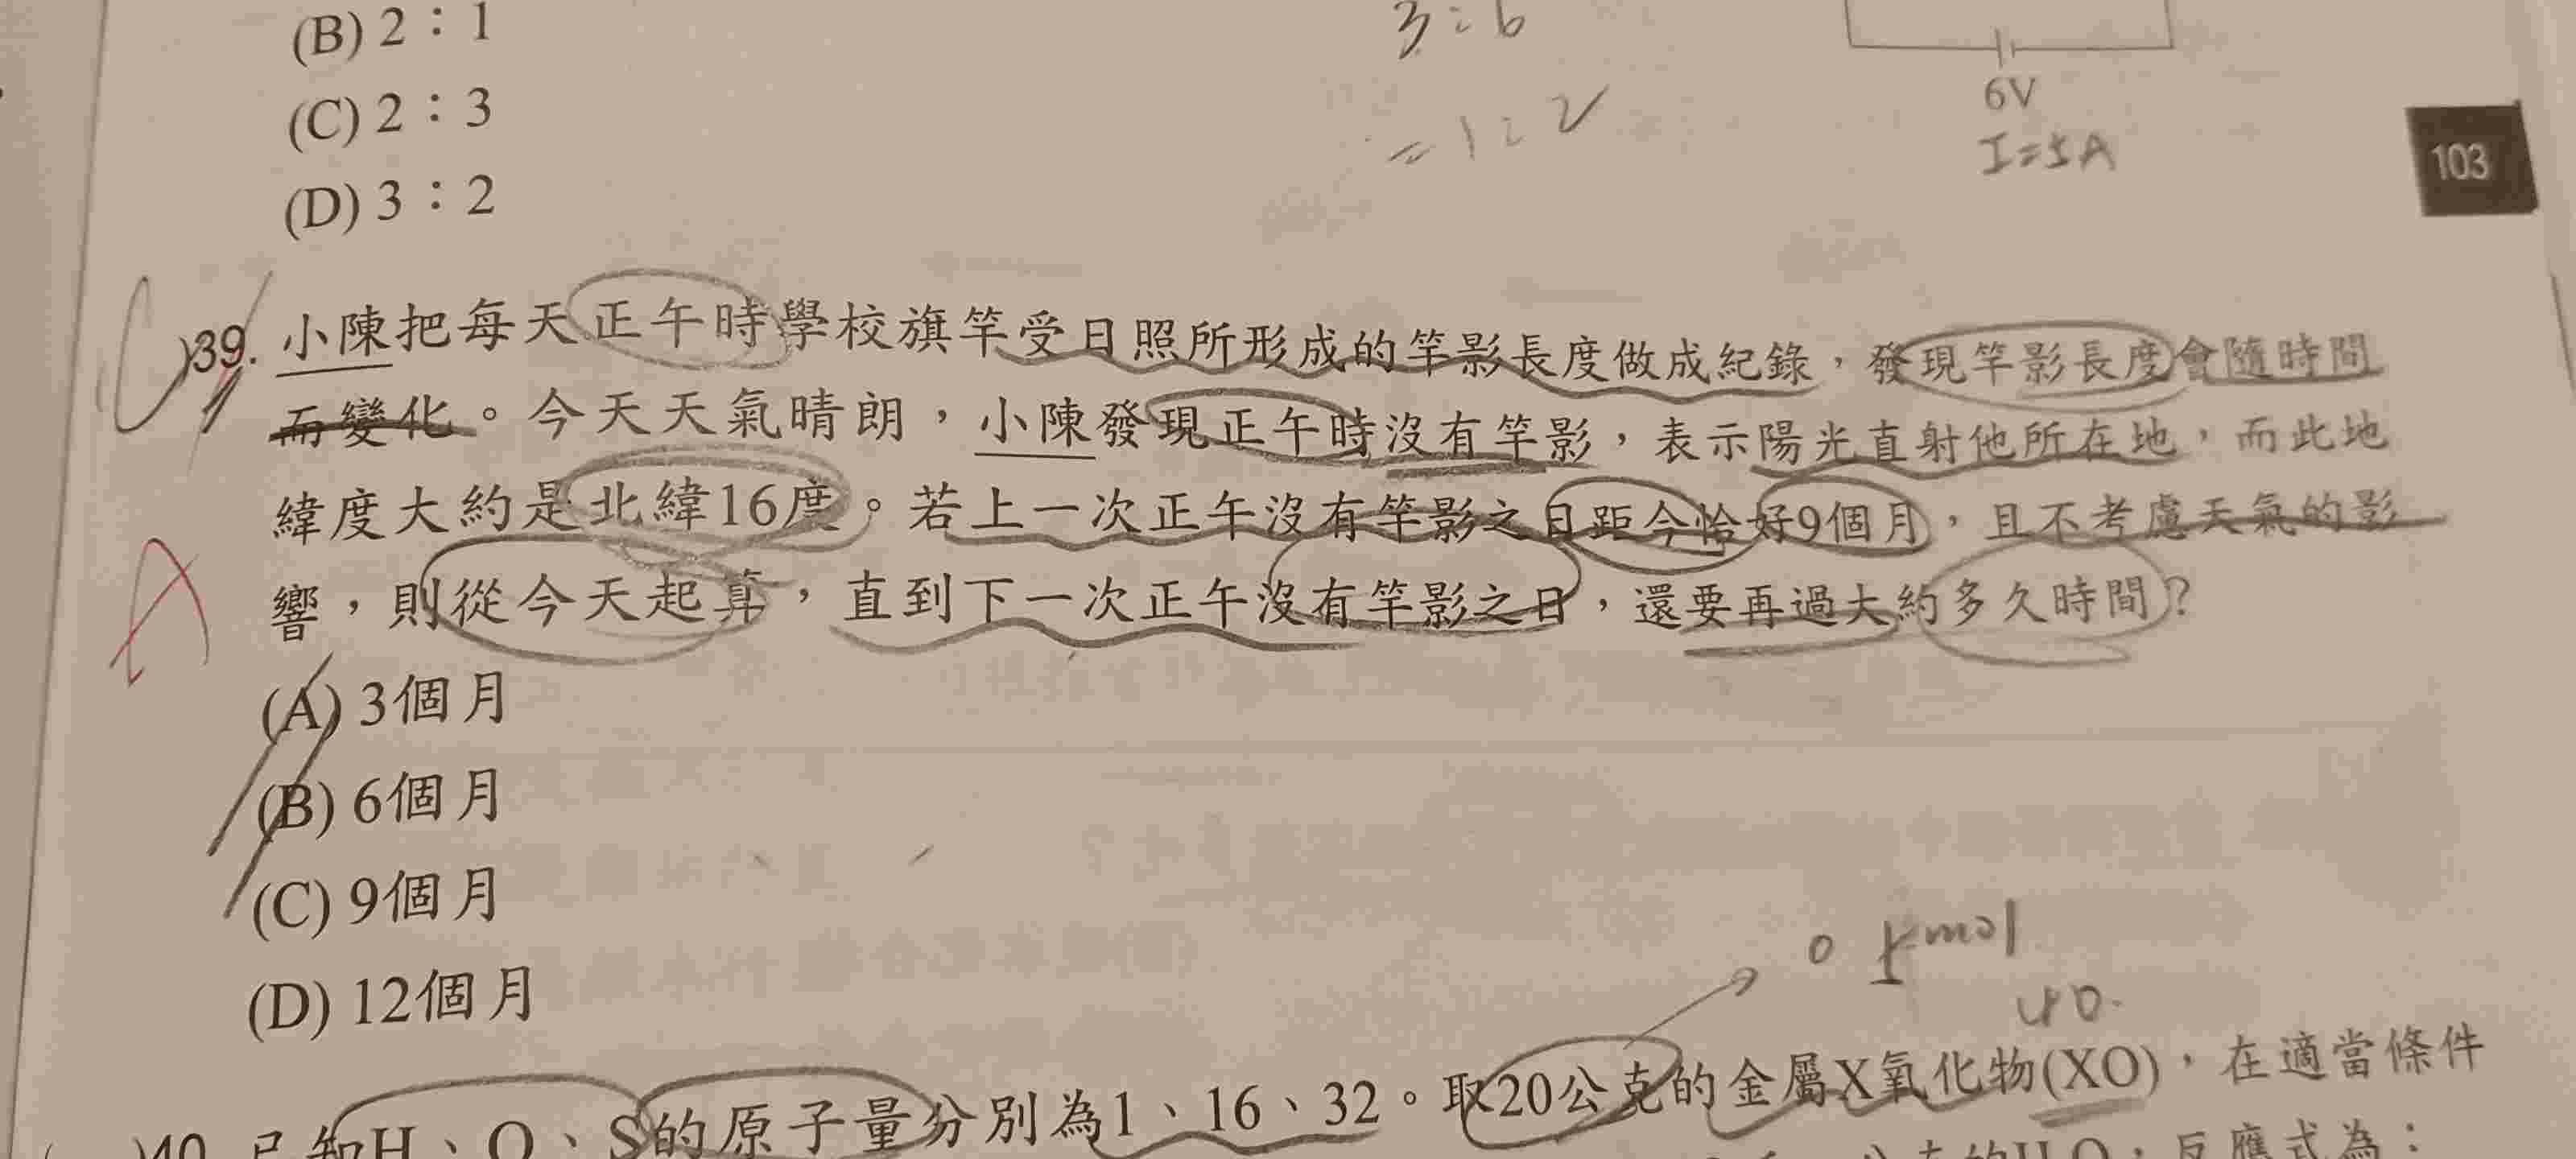 (B) 2：1
3:6
(C) 2：3
6V
=1:2
I=5A
103
(D) 3：2
)39. 小陳把每天正午時學校旗竿受日照所形成的竿影長度做成紀錄，發現竿影長度會隨時間
而變化。今天天氣晴朗，小陳發現正午時沒有竿影，表示陽光直射他所在地，而此地
緯度大約是北緯16度。若上一次正午沒有竿影之日距今恰好9個月，且不考慮天氣的影
響，則從今天起算，直到下一次正午沒有竿影之日，還要再過大約多久時間？
A
(A) 3個月
(B) 6個月
(C) 9個月
(D) 12個月
mol
40.
()40. 已知H、O、S的原子量分別為1、16、32。取20公克的金屬X氧化物(XO)，在適當條件
反應式為：